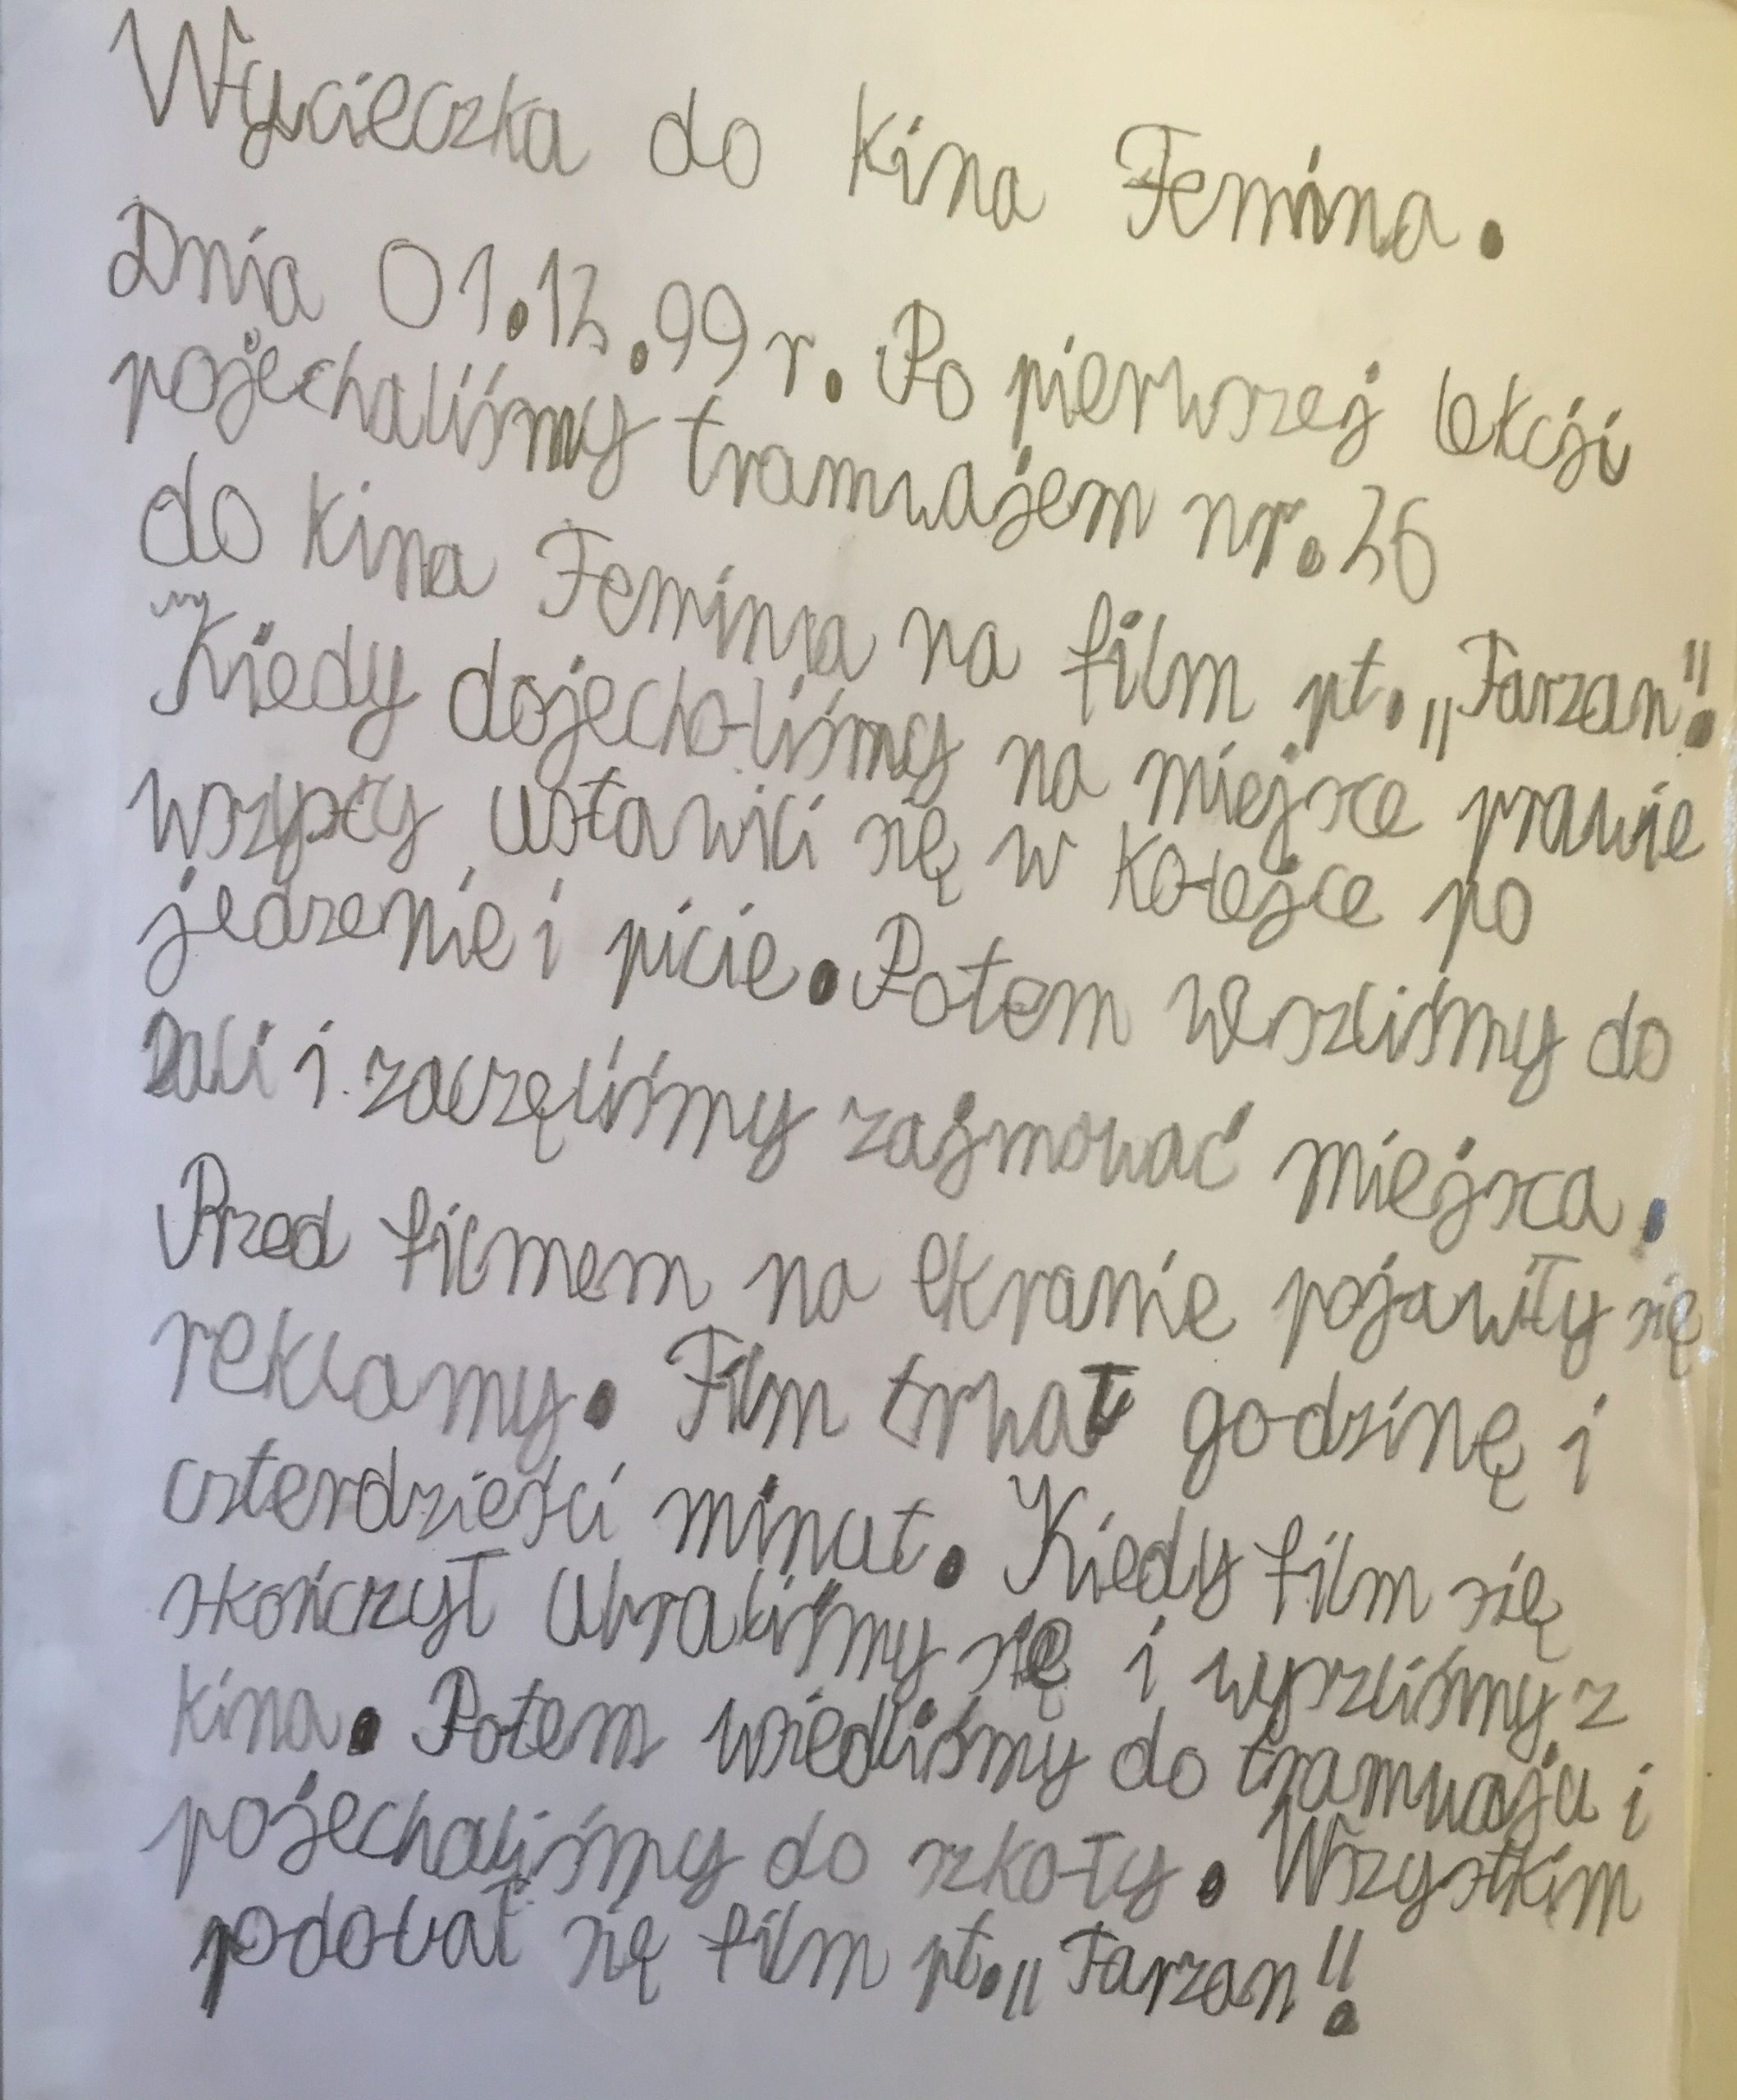 Wycieczka do kina Femina.
Dnia 01.12.99 r. Po pierwszej lekcji
pojechaliśmy tramwajem nr. 26
do kina Femina na film pt. „Tarzan".
Kiedy dojechaliśmy na miejsce prawie
wszyscy ustawili się w kolejce po
jedzenie i picie. Potem weszliśmy do
sali i zaczęliśmy zajmować miejsca.
Przed filmem na ekranie pojawiły się
reklamy. Film trwał godzinę i
czterdzieści minut. Kiedy film się
skończył ubraliśmy się i wyszliśmy z
kina. Potem wsiedliśmy do tramwaju i
pojechaliśmy do szkoły. Wszystkim
podobał się film pt. „Tarzan".